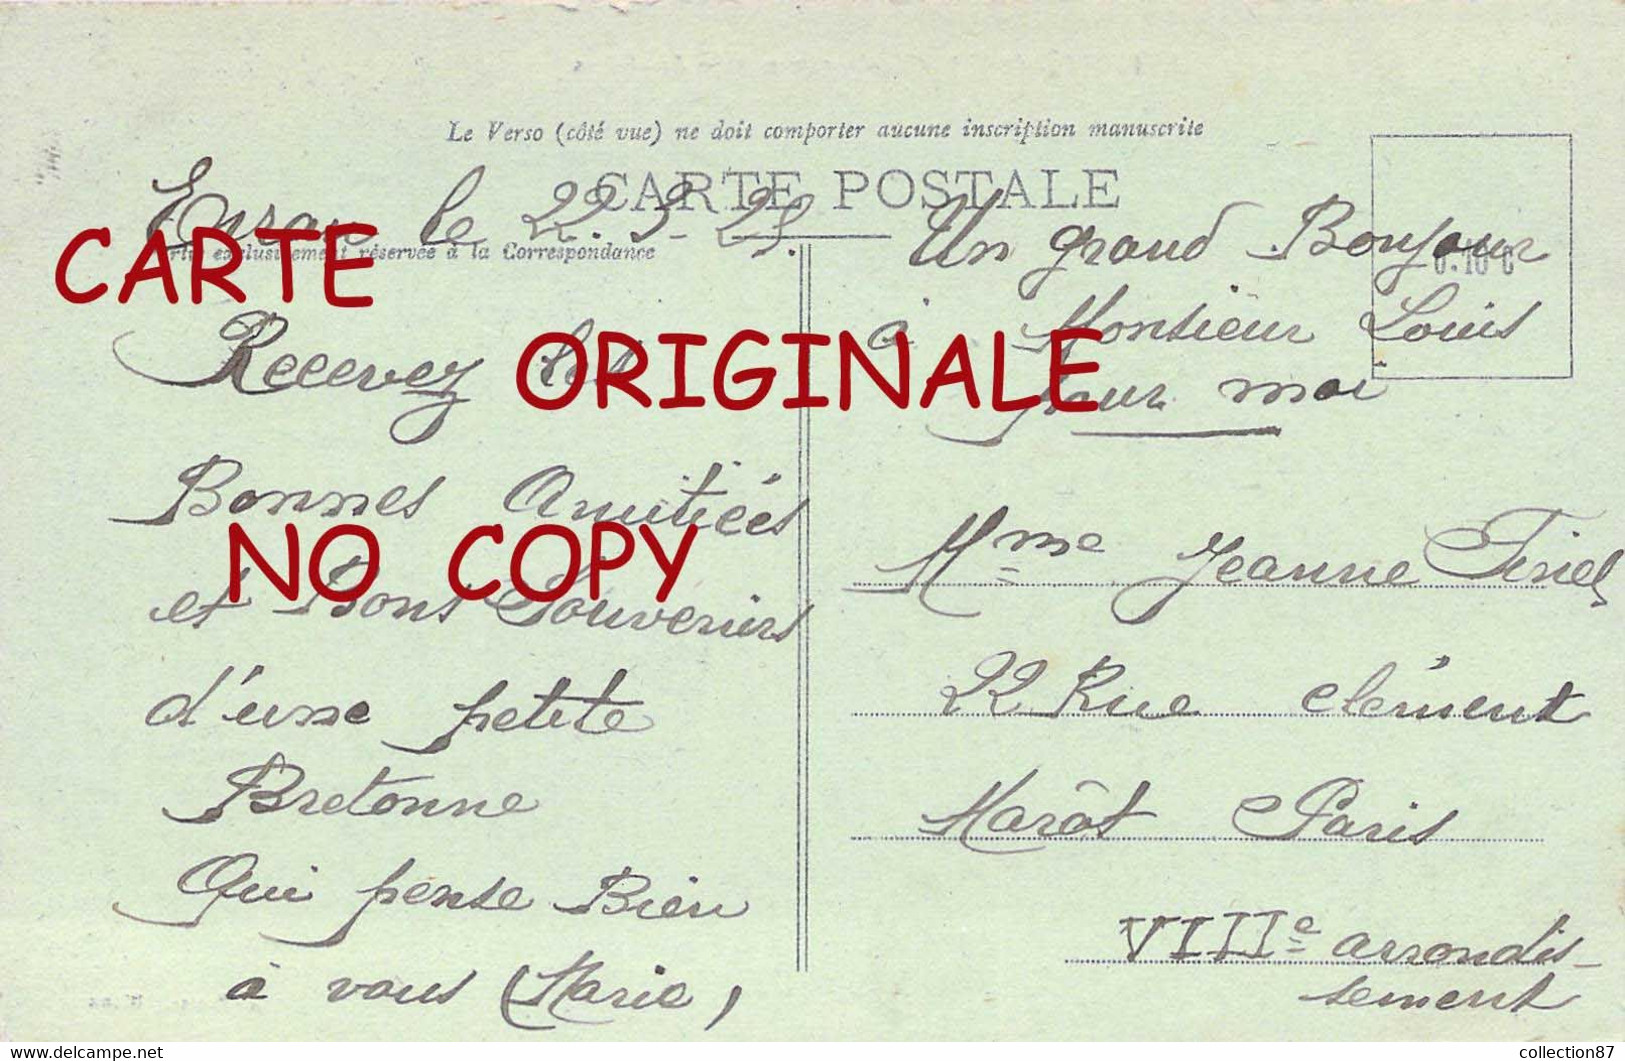 Le Verso (côté vue) ne doit comporter aucune inscription manuscrite
CARTE POSTALE
le 22.3.25.
exclusivement réservée à la Correspondance
0.10 c
CARTE
ORIGINALE
NO COPY
Recevez les
Bonnes Amitiées
et Bons Souvenirs
d'une petite
Bretonne
Qui pense Bien
à vous (Marie)
Un grand Bonjour
à Monsieur Louis
pour moi
Mme Jeanne
22 Rue clément
Marôt Paris
VIIIe arrondis-
sement
collection87